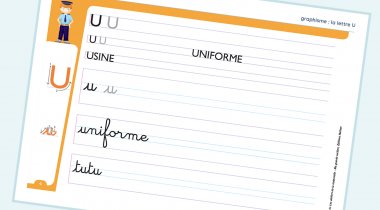 graphisme : la lettre U
U U
U U
USINE UNIFORME
U
u u
u
uniforme
tutu